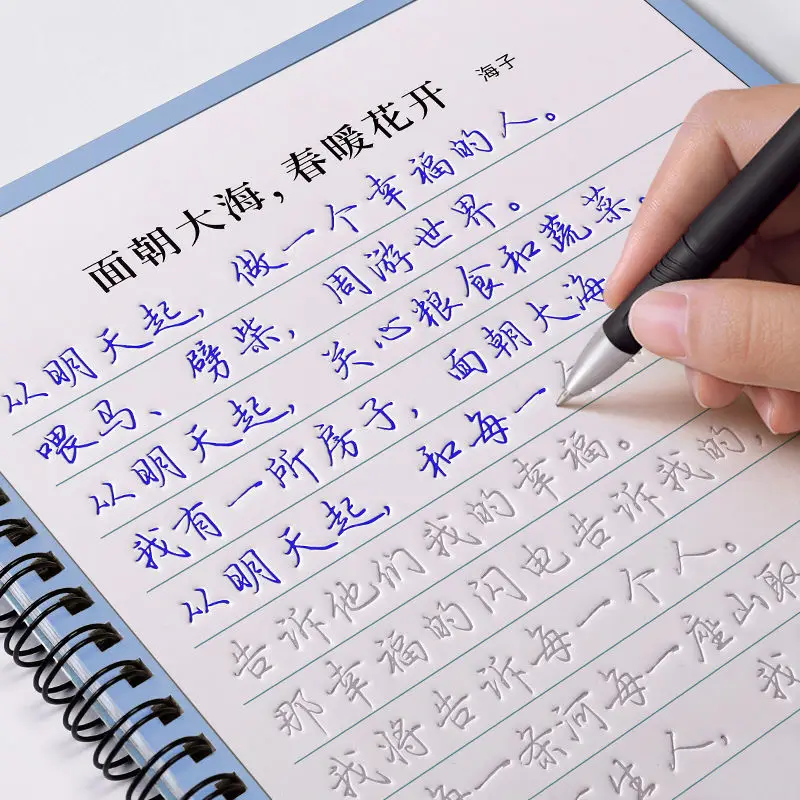 面朝大海，春暖花开 海子
从明天起，做一个幸福的人。
喂马、劈柴，周游世界。
从明天起，关心粮食和蔬菜。
我有一所房子，面朝大海
从明天起，和每一个
告诉他们我的幸福。
那幸福的闪电告诉我的，
我将告诉每一个人。
每一条河每一座山取
生人，我